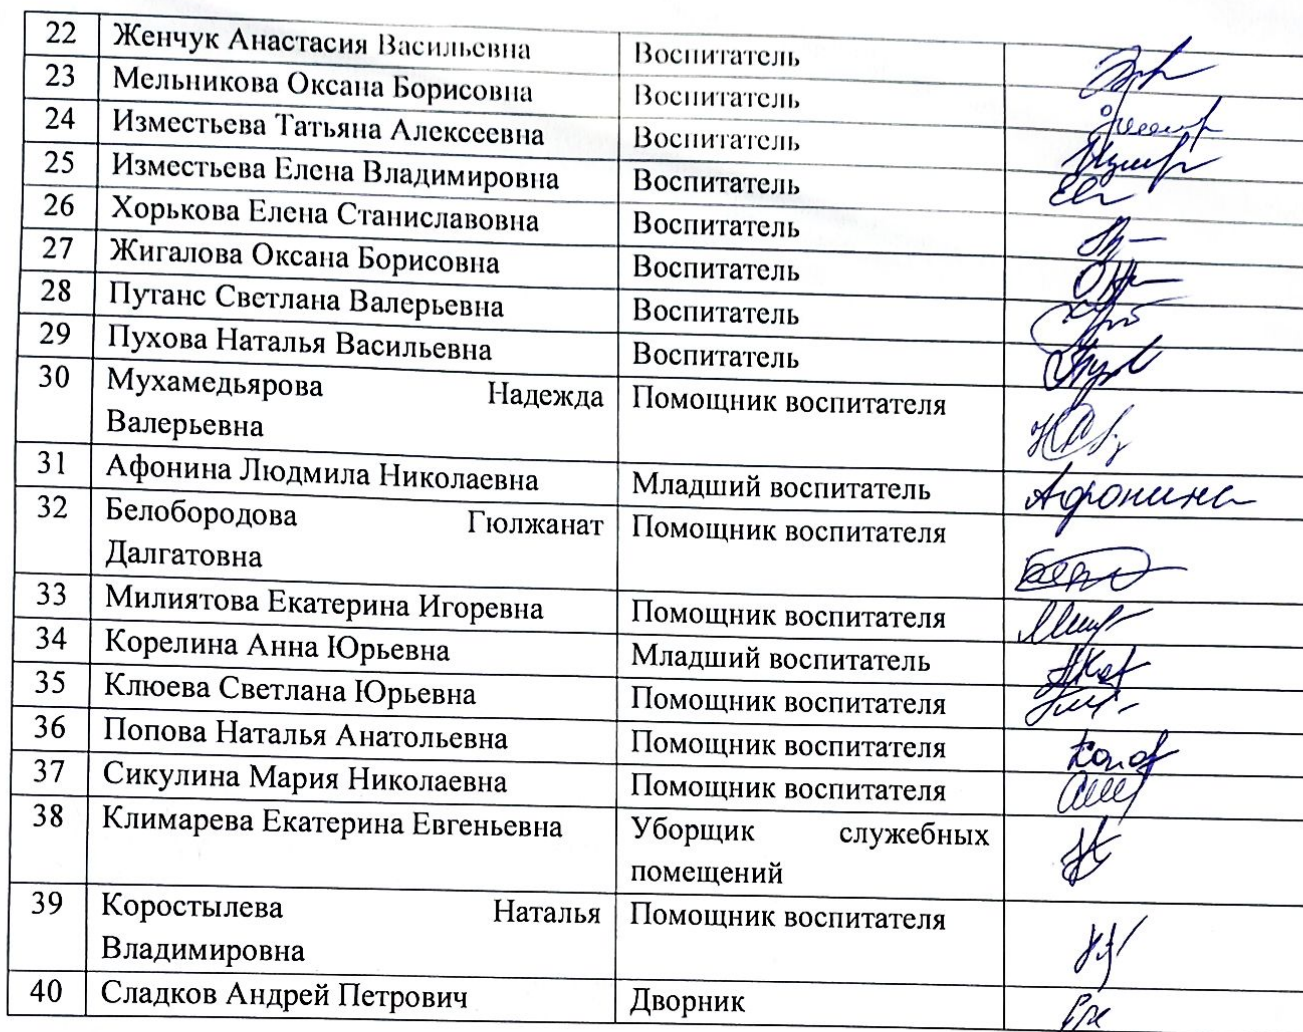 22 Женчук Анастасия Васильевна Воспитатель
23 Мельникова Оксана Борисовна Воспитатель
24 Изместьева Татьяна Алексеевна Воспитатель
25 Изместьева Елена Владимировна Воспитатель
26 Хорькова Елена Станиславовна Воспитатель
27 Жигалова Оксана Борисовна Воспитатель
28 Путанс Светлана Валерьевна Воспитатель
29 Пухова Наталья Васильевна Воспитатель
30 Мухамедьярова Надежда Помощник воспитателя
Валерьевна
31 Афонина Людмила Николаевна Младший воспитатель Афонина
32 Белобородова Гюлжанат Помощник воспитателя
Далгатовна
33 Милиятова Екатерина Игоревна Помощник воспитателя
34 Корелина Анна Юрьевна Младший воспитатель
35 Клюева Светлана Юрьевна Помощник воспитателя
36 Попова Наталья Анатольевна Помощник воспитателя
37 Сикулина Мария Николаевна Помощник воспитателя
38 Климарева Екатерина Евгеньевна Уборщик служебных
помещений
39 Коростылева Наталья Помощник воспитателя
Владимировна
40 Сладков Андрей Петрович Дворник